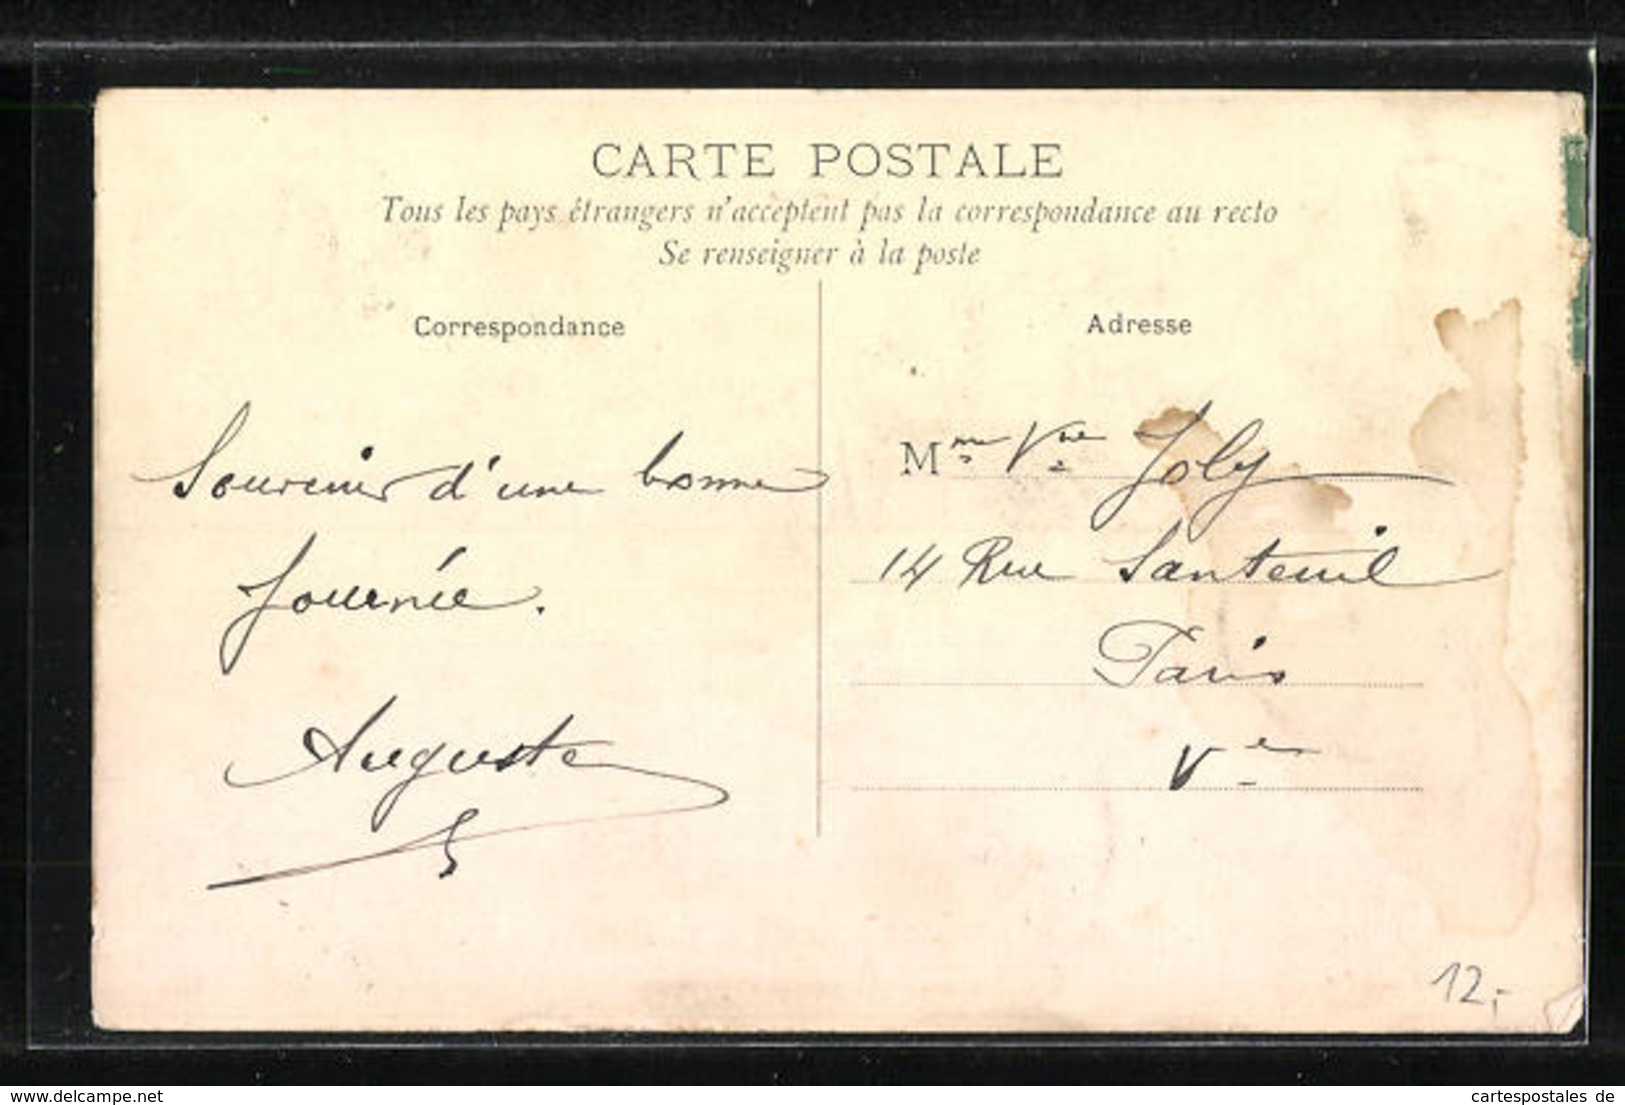 CARTE POSTALE
Tous les pays étrangers n'acceptent pas la correspondance au recto
Se renseigner à la poste
Correspondance
Adresse
Souvenir d'une bonne
Journée.
Auguste
Mme Vve Joly
14 Rue Santeuil
Paris
Ve
12,-
delcampe.net
cartespostales de